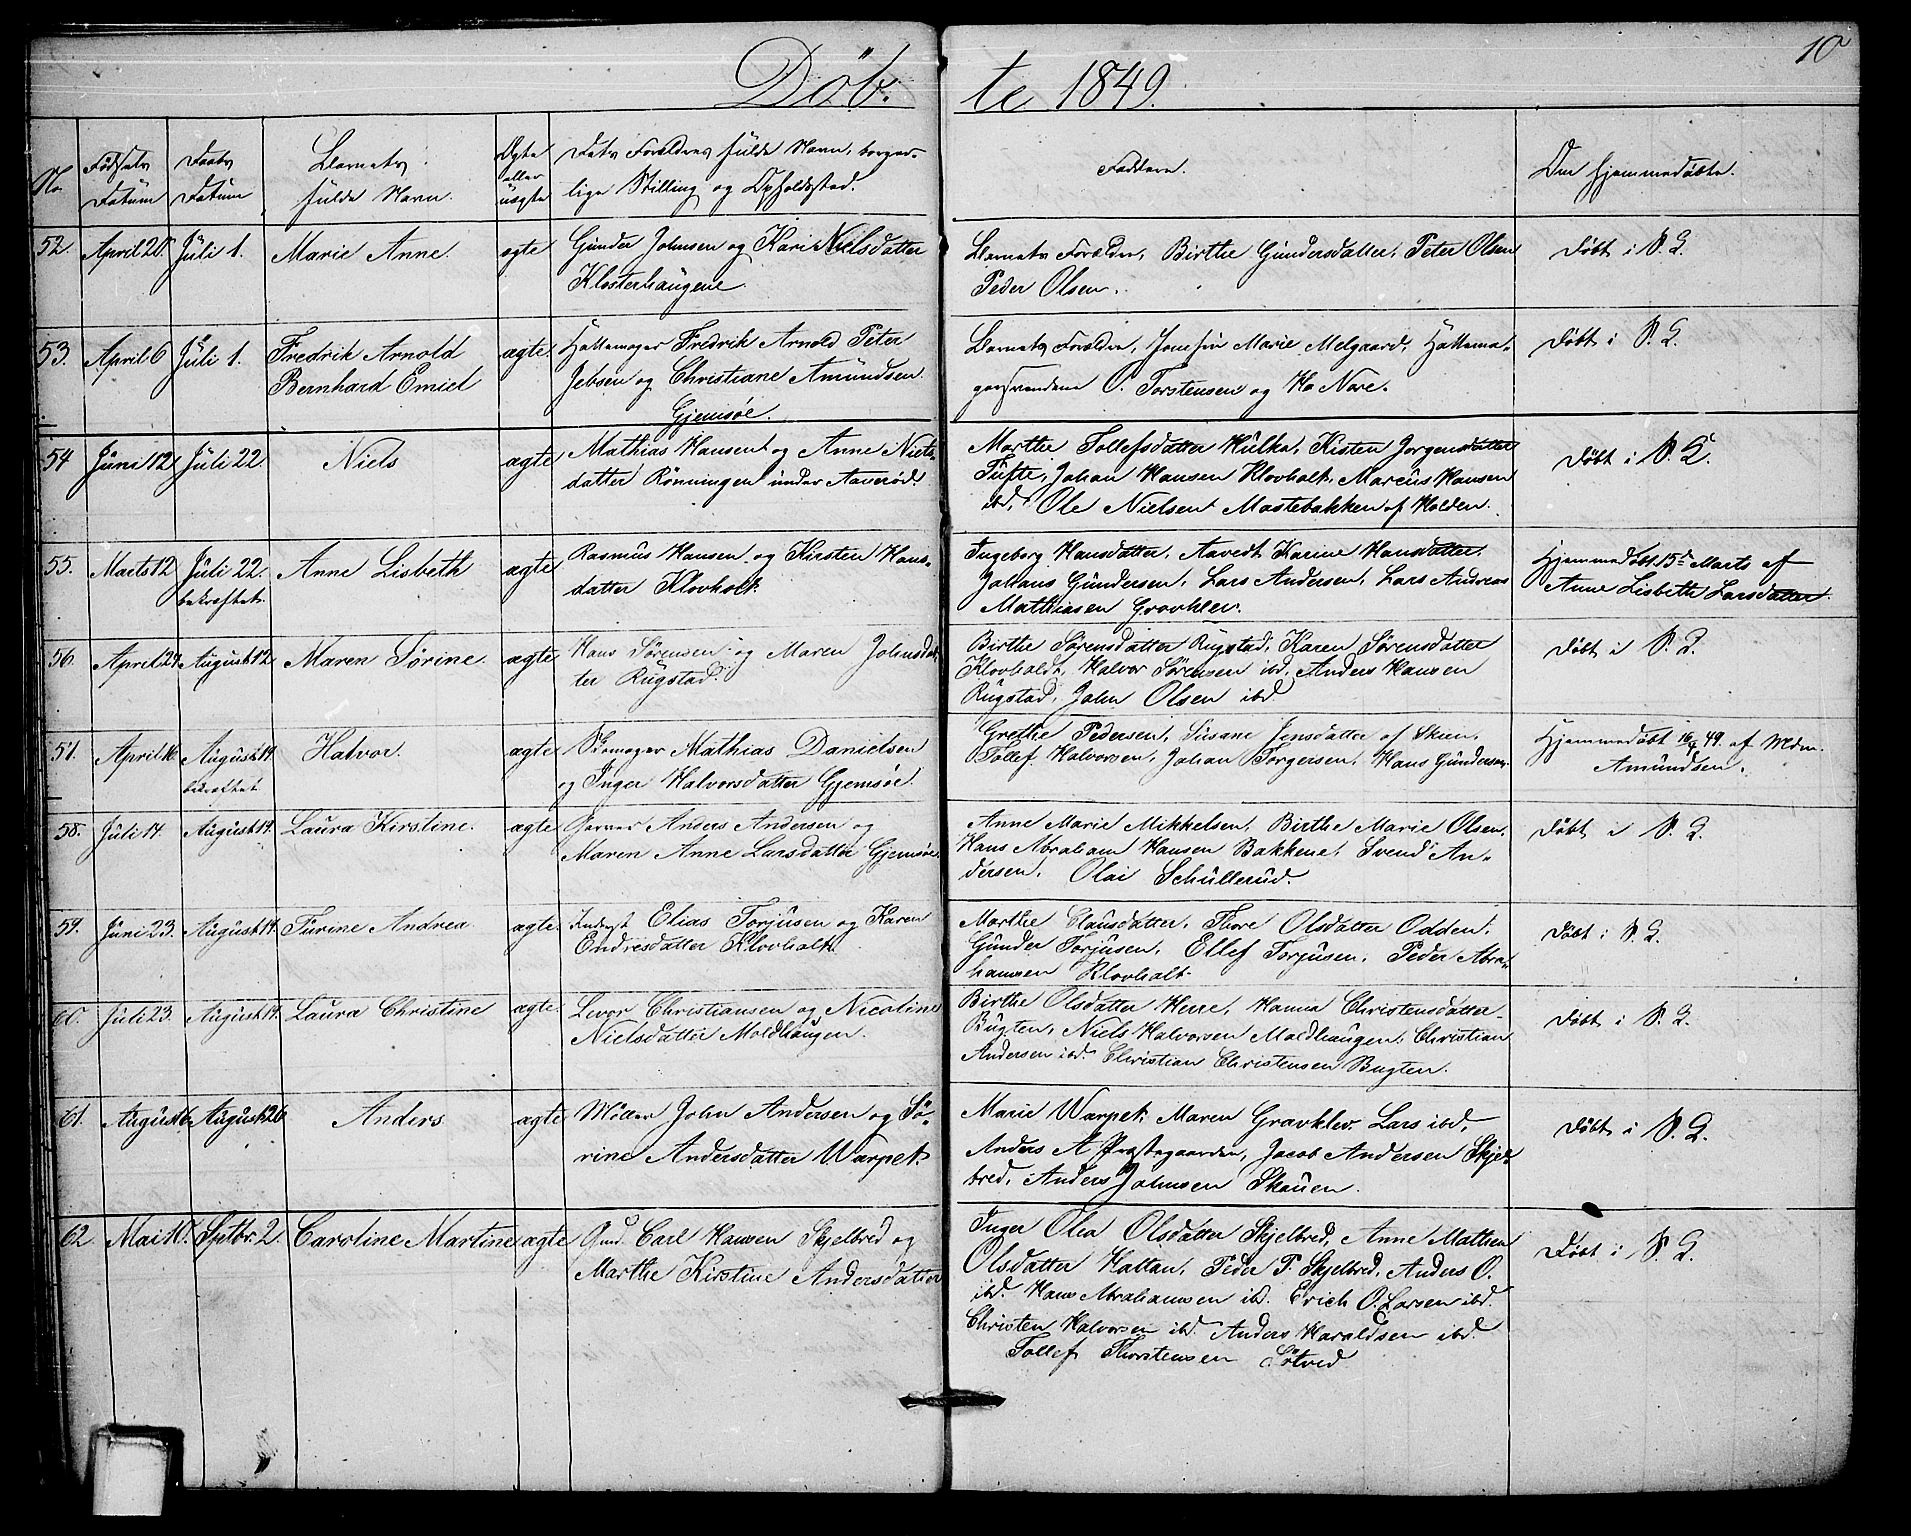 10
Döb. te 1849.
No Fødsels Datum Daabs Datum Barnets fulde Navn. Ægte eller uægte Dets Forældres fulde Navn, borger- lige Stilling og Opholdssted. Faddere. Om hjemmedøbte.
52. April 20. Juli 1. Marie Anne. egte Gunder Johnsen og Kari Nielsdatter
Klosterhaugene.
Barnets Forældre, Birthe Gundersdatter, Peter Olsen
Peder Olsen.
Døbt i S. G.
53. April 6 Juli 1. Fredrik Arnold
Bernhard Emiel
ægte. Hattemager Fredrik Arnold Peter
Jebsen og Christiane Amundsen.
Gjemsøe.
Barnets Forældre, Marie Melgaard, Hattema-
gersvendene O. Torstensen og Nore.
Døbt i S. G.
54 Juni 12 Juli 22 Niels ægte Mathias Hansen og Anne Niels-
datter Rönningen under Aaverød.
Marthe Tollefsdatter Hulka, Kisten Jorgensdatter
Tufte, Johan Hansen Klovholt, Marcus Hansen
ibd, Ole Nielsen Mastebakken af Holden.
Døbt i S. G.
55. Marts 12 Juli 22.
bekræftet.
Anne Lisbeth ægte Rasmus Hansen og Kirsten Hans-
datter Klovholt.
Ingeborg Hansdatter, Aavedt Karine Hansdatter.
Johans Gundersen, Lars Andersen, Lars Andreas
Mathiasen Gravklev.
Hjemmedøbt 15de Marts af
Anne Lisbeth Larsdatter.
56. April 24 August 12 Maren Sørine. ægte Hans Sørensen og Maren Johnsdat-
ter Rugstad.
Birthe Sørensdatter Rugstad, Karen Sørensdatter
Klovholdt, Halvor Sørensen ibd, Anders Hansen
Rugstad, John Olsen ibd
Døbt i S. G.
57. April 16 August 19.
bekræftet
Halvor. ægte Skomager Mathias Danielsen
og Inger Halvorsdatter Gjemsøe.
Grethe Pedersen, Susane Jensdatter af Skien,
Tollef Halvorsen, Johan Torgersen, Hans Gundersen.
Hjemmedøbt 16/4 49. af Mdm.
Amundsen.
58. Juli 14. August 19. Laura Kirstine. ægte Garver Anders Andersen og
Maren Anne Larsdatter Gjemsøe.
Anne Marie Mikkelsen, Birthe Marie Olsen,
Hans Abraham Hansen Bakkene, Svend An-
dersen, Olai Schullerud.
Døbt i S. G.
59. Juni 23. August 19. Turine Andrea ægte. Inderst Elias Torjusen og Karen
Endresdatter Klovholt.
Marthe Clausdatter, Thore Olsdatter Odden,
Gunder Torjusen, Ellef Torjusen, Peder Abra-
hamsen Klovholt.
Døbt i S. G.
60. Juli 23. August 19. Laura Christine ægte. Levor Christiansen og Nicoline
Nielsdatter Moldhaugen.
Birthe Olsdatter Herre, Hanna Christensdatter
Bugten, Niels Halvorsen Moldhaugen, Christian
Andersen ibd. Christian Christensen Bugten.
Døbt i S. G.
61. August 6 August 26 Anders ægte Møller John Andersen og Sö-
rine Andersdatter Warpet.
Marie Warpet, Maren Gravklev Lars ibd,
Anders A Præstegaarden, Jacob Andersen Skjel-
bred, Anders Johnsen Skauen.
Døbt i S. G.
62 Mai 10. Sptbr. 2. Caroline Martine ægte Gmd. Carl Hansen Skjelbred og
Marthe Kirstine Andersdatter
Inger Olea Olsdatter Skjelbred, Anne Mathea
Olsdatter Hattan, Peder P. Skjelbred, Anders O.
ibd. Hans Abrahamsen ibd. Erich O. Larsen ibd.
Christen Halvorsen ibd. Anders Haraldsen ibd.
Tollef Thorstensen Sötved
Døbt i S. G.